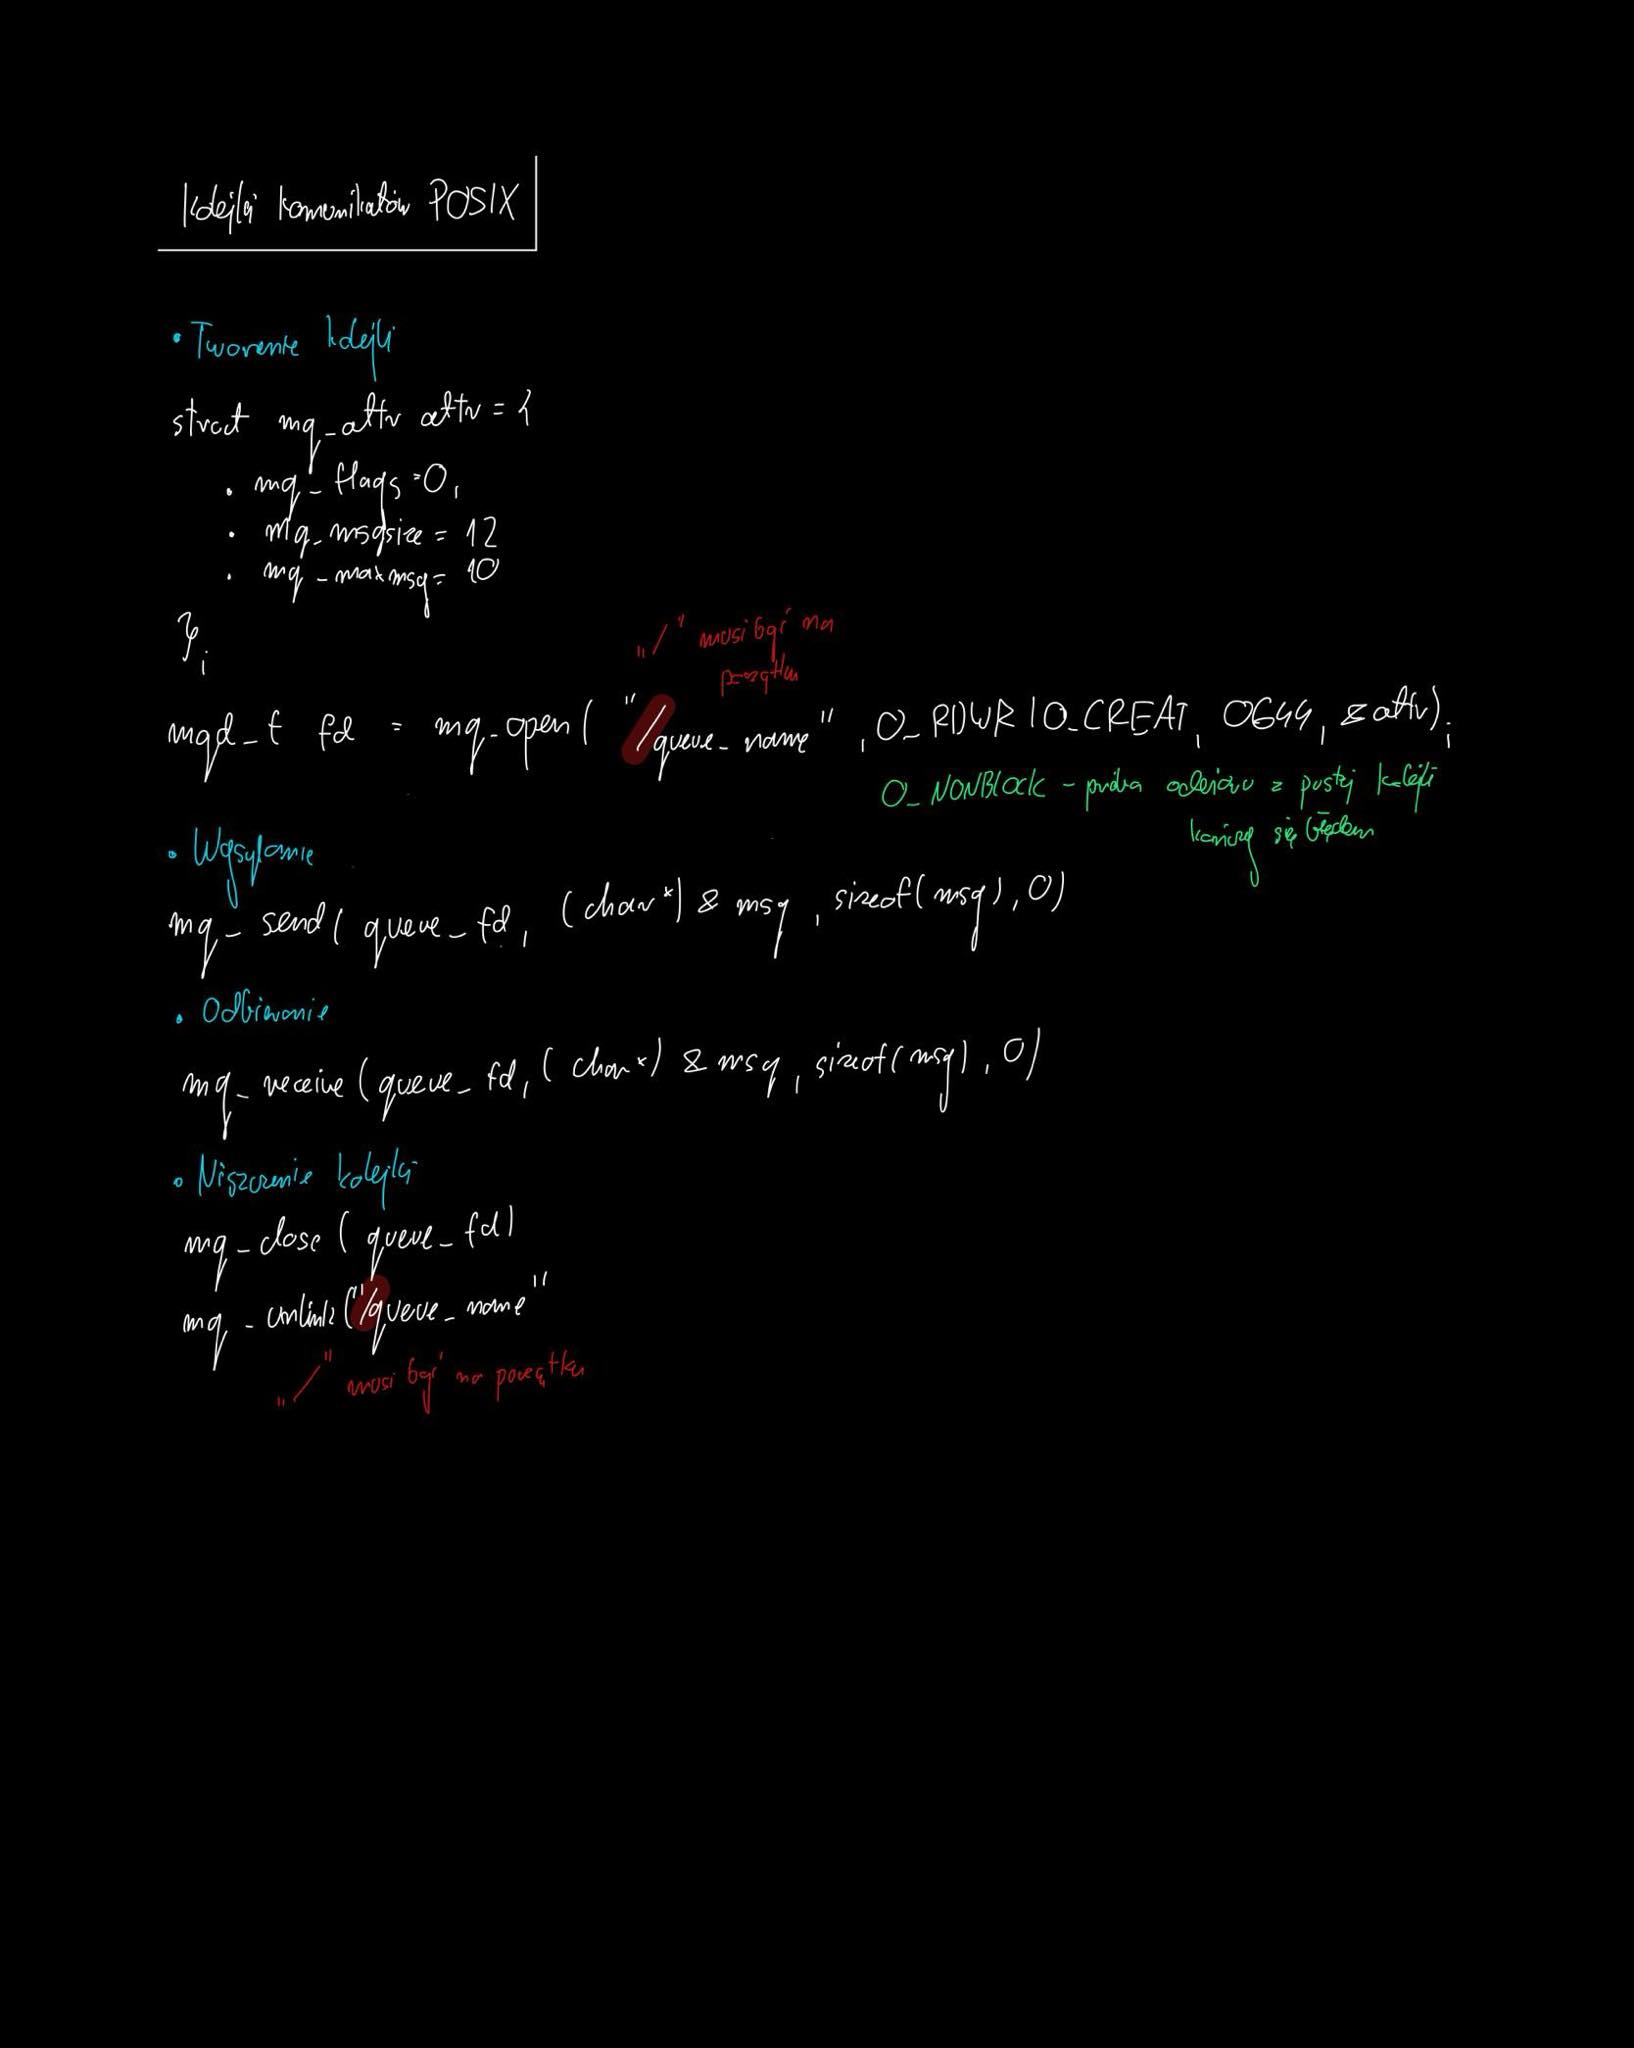 Kolejki komunikatów POSIX
• Tworzenie kolejki
struct mq_attr attr = {
. mq_flags = 0,
. mq_msgsize = 12
. mq_maxmsg = 10
};
"/" musi być na
początku
mqd_t fd = mq_open( "/queue_name" , O_RDWR | O_CREAT, 0644, &attr);
O_NONBLOCK - próba odbioru z pustej kolejki
kończy się błędem
• Wysyłanie
mq_send( queue_fd, (char*) & msg, sizeof(msg), 0)
• Odbieranie
mq_receive (queue_fd, (char*) & msg, sizeof(msg), 0)
• Niszczenie kolejki
mq_close ( queue_fd)
mq_unlink ("/queue_name"
"/" musi być na początku